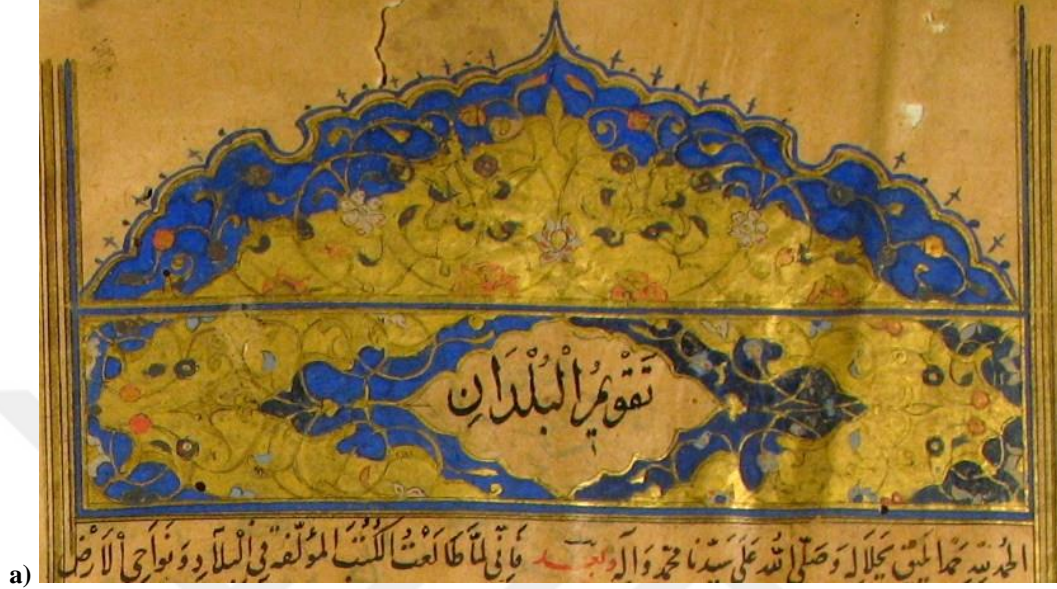 تَقْوِيمُ الْبُلْدَانِ
الحمد لله حمدًا يليق بجلاله وَصَلَّى اللّٰه عَلَى سَيِّدِنا محمّد وَآلِهِ وبعد فَاِنِّي لَمَّا طَالَعْتُ الْكُتُبَ المؤلّفة فِي الْبِلَادِ وَنَوَاحِي الْاَرْضِ
a)